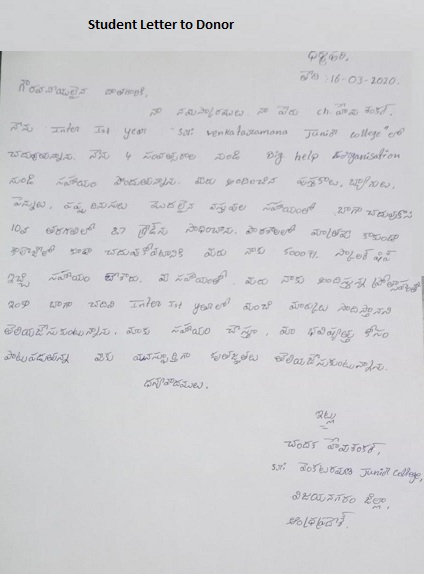 Student Letter to Donor
ధర్మపురి,
తేది:-16-03-2020.
గౌరవనీయులైన దాతలకు,
నా నమస్కారములు నా పేరు ch. హేమ శంకర్.
నేను Inter Ist year "Sri venkataramana Junior college" లో
చదువుతున్నాను. నేను 4 సంవత్సరాల నుండి Big help Organisation
నుండి సహాయం పొందుతున్నాను. మీరు అందించిన పుస్తకాలు, బ్యాగులు,
పెన్నులు, మొదలైన వస్తువుల సహాయంతో బాగా చదువుకొని
10వ తరగతిలో 8.7 సాధించాను. పాఠశాలలో మాత్రమే కాకుండా
కాలేజీలో కూడా చదువుకోవటానికి మీరు నాకు 6000/- స్కాలర్ షిప్
ఇచ్చి సహాయం చేశారు. మీ సహాయంతో, మీరు నాకు అందిస్తున్న ప్రోత్సాహంతో
ఇంకా బాగా చదివి Inter Ist year లో మంచి మార్కులు సాధిస్తానని
తెలియజేసుకుంటున్నాను. మాకు సహాయం చేస్తూ, మా భవిష్యత్తు కోసం
పాటుపడుతున్న మీకు మనస్ఫూర్తిగా కృతజ్ఞతలు తెలియజేసుకుంటున్నాను.
ధన్యవాదములు.
ఇట్లు
చందక హేమశంకర్,
Sri వెంకటరమణ Junior College,
విజయనగరం జిల్లా,
ఆంధ్రప్రదేశ్.